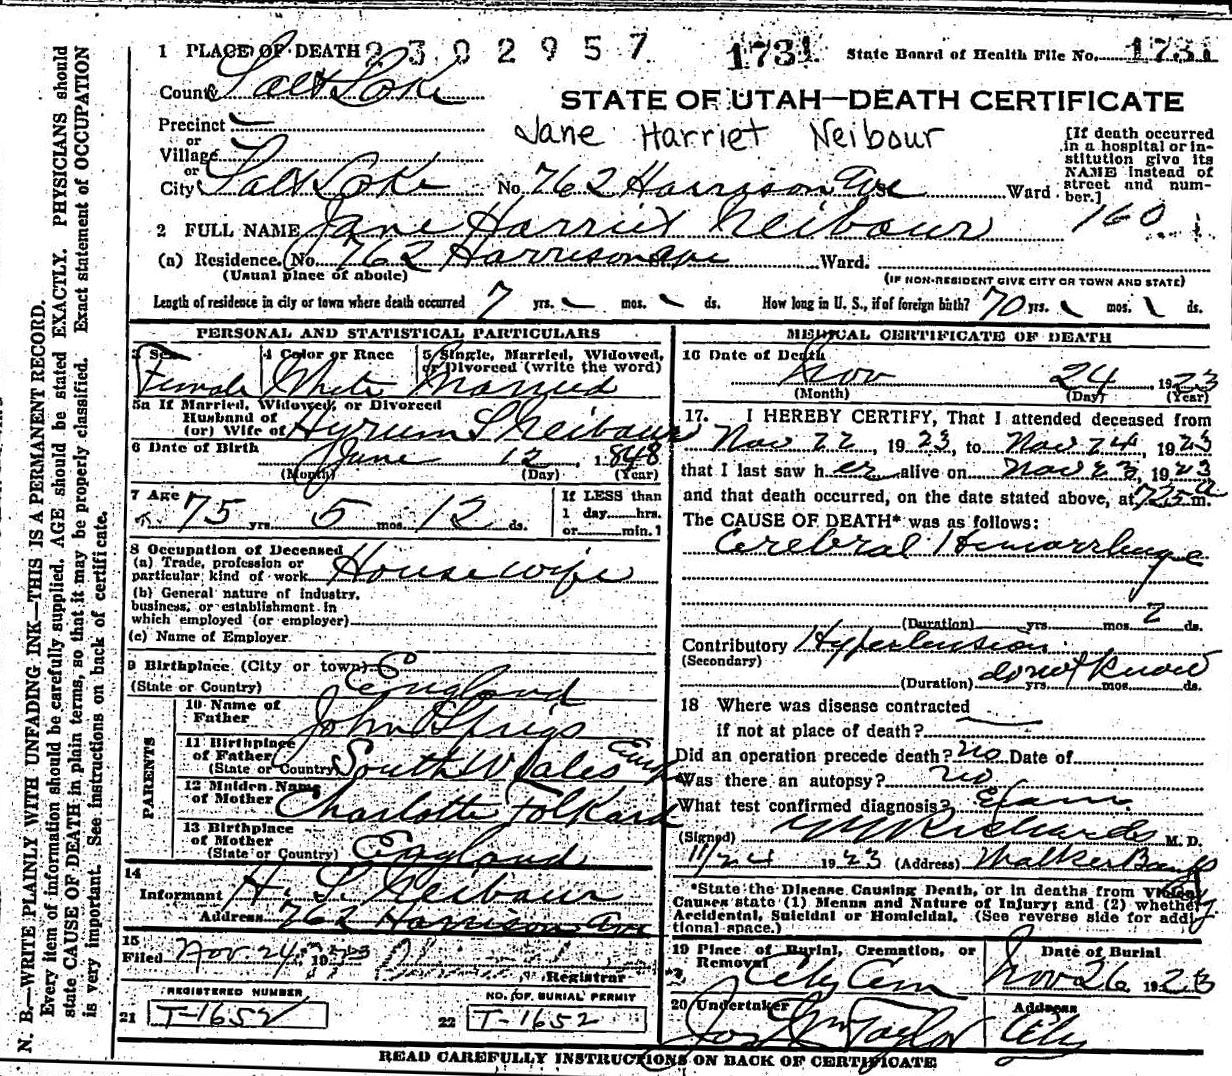 1 PLACE OF DEATH 2302957 1731 State Board of Health File No. 1731
County Salt Lake
STATE OF UTAH—DEATH CERTIFICATE
Precinct
or
Village
or
Jane Harriet Neibour
[If death occurred in a hospital or institution give its NAME instead of street and number.]
City Salt Lake No. 762 Harrison Ave Ward
2 FULL NAME Jane Harriet Neibour 160
(a) Residence. (No. 762 Harrison Ave Ward.
(Usual place of abode) (IF NON-RESIDENT GIVE CITY OR TOWN AND STATE)
Length of residence in city or town where death occurred 7 yrs. mos. ds. How long in U. S., if of foreign birth? 70 yrs. mos. ds.
PERSONAL AND STATISTICAL PARTICULARS
3 Sex 4 Color or Race 5 Single, Married, Widowed, or Divorced (write the word)
Female White Married
5a If Married, Widowed, or Divorced
Husband of
(or) Wife of Hyrum S Neibour
6 Date of Birth June 12, 1848
(Month) (Day) (Year)
7 Age 75 yrs. 5 mos. 12 ds.
If LESS than
1 day hrs.
or min.
8 Occupation of Deceased
(a) Trade, profession or
particular kind of work Housewife
(b) General nature of industry,
business, or establishment in
which employed (or employer)
(c) Name of Employer
9 Birthplace (City or town)
(State or Country) England
PARENTS
10 Name of
Father John Sprigs
11 Birthplace
of Father
(State or Country) South Wales Eng
12 Maiden Name
of Mother Charlotte Folkard
13 Birthplace
of Mother
(State or Country) England
14
Informant H. S. Neibour
Address 762 Harrison Ave
15
Filed Nov 24, 1923 Registrar
REGISTERED NUMBER NO. OF BURIAL PERMIT
21 T-1652 22 T-1652
MEDICAL CERTIFICATE OF DEATH
16 Date of Death
Nov 24, 1923
(Month) (Day) (Year)
17. I HEREBY CERTIFY, That I attended deceased from
Nov 22, 1923, to Nov 24, 1923
that I last saw her alive on Nov 23, 1923
and that death occurred, on the date stated above, at 725 a m.
The CAUSE OF DEATH* was as follows:
Cerebral Hemorrhage
(Duration) yrs. mos. 2 ds.
Contributory Hypertension
(Secondary)
(Duration) do not know yrs. mos. ds.
18 Where was disease contracted
if not at place of death?
Did an operation precede death? no Date of
Was there an autopsy? no
What test confirmed diagnosis? Exam.
(Signed) Richards M. D.
11/24 1923 (Address) Walker Bank Bldg
*State the Disease Causing Death, or in deaths from Violent
Causes state (1) Means and Nature of Injury; and (2) whether
Accidental, Suicidal or Homicidal. (See reverse side for addi-
tional space.)
19 Place of Burial, Cremation, or Removal Date of Burial
City Cem Nov 26, 1923
20 Undertaker Address
Jos Wm Taylor City
READ CAREFULLY INSTRUCTIONS ON BACK OF CERTIFICATE
N. B.—WRITE PLAINLY WITH UNFADING INK—THIS IS A PERMANENT RECORD.
Every item of information should be carefully supplied. AGE should be stated EXACTLY. PHYSICIANS should
state CAUSE OF DEATH in plain terms, so that it may be properly classified. Exact statement of OCCUPATION
is very important. See instructions on back of certificate.